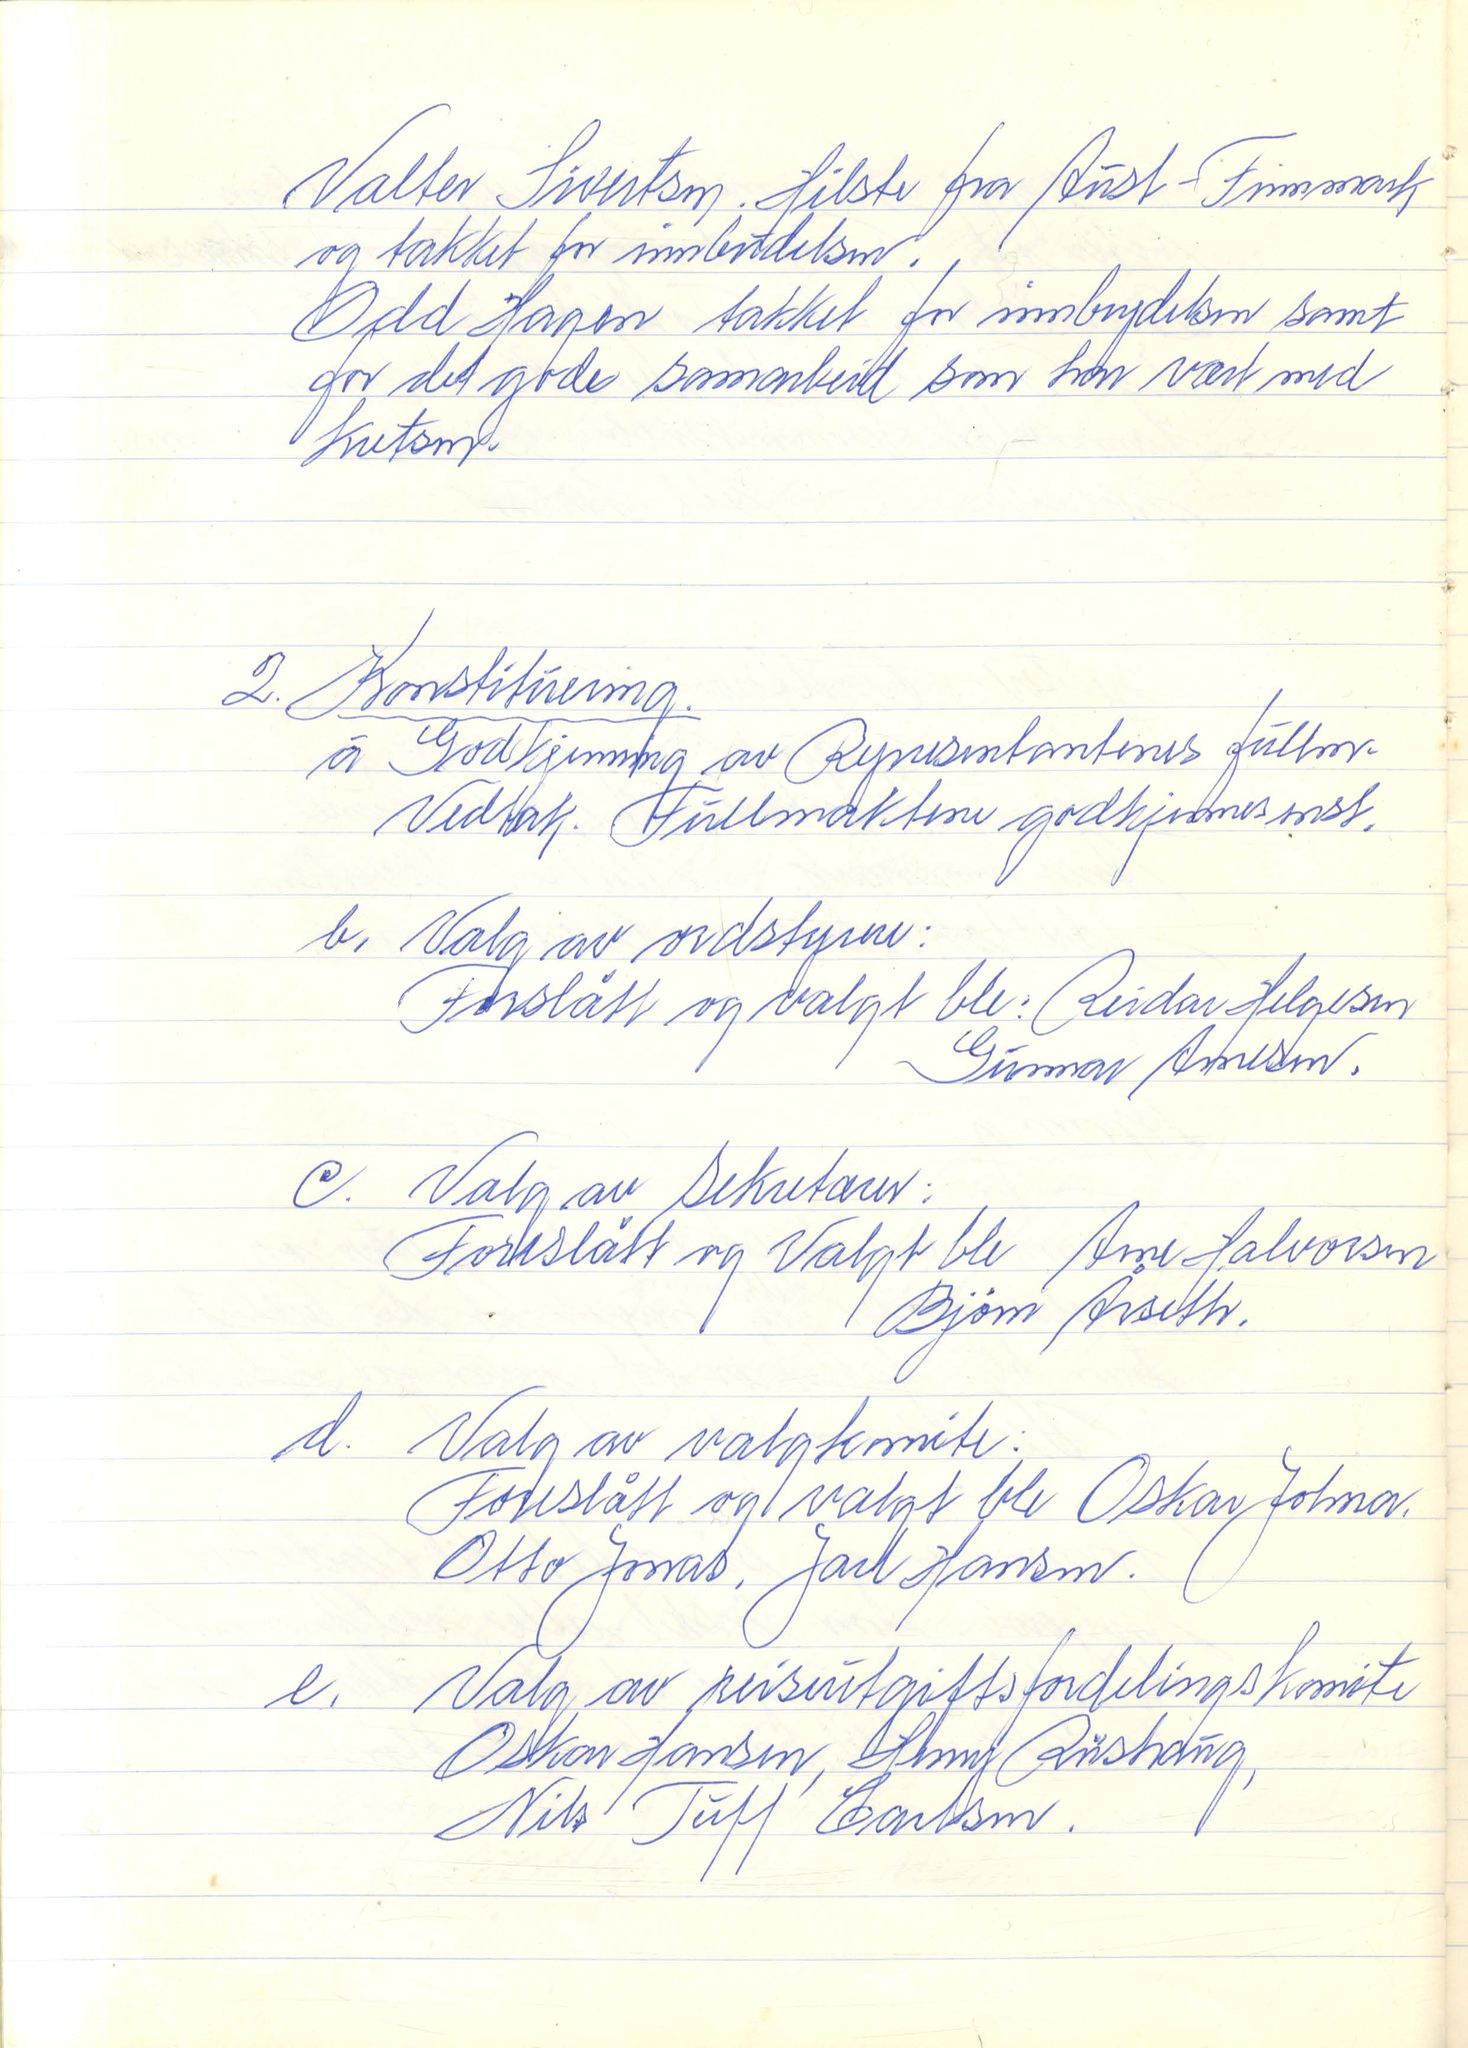 Valter Sivertsen. Hilste fra Aust-Finnmark
og takket for innbudelsen.
Odd Hagen takket for innbydelsen samt
for det gode samarbeid som har vært med
kretsen.
2. Konstituering.
a Godkjenning av Representantenes fullm.
Vedtak. Fullmaktene godkjennes enst.
b. Valg av ordstyrere:
Forslått og valgt ble: Reidar Helgesen
Gunnar Arnesen.
c. Valg av Sekretærer:
Foreslått og Valgt ble Arne Halvorsen
Bjørn Årseth.
d. Valg av valgkomite:
Foreslått og valgt ble Oskar Johna.
Otto Jonas, Jarl Hansen.
e. Valg av reiseutgiftsfordelingskomite
Oskar Hansen, Henry Rushaug,
Nils Tuff Carlsen.